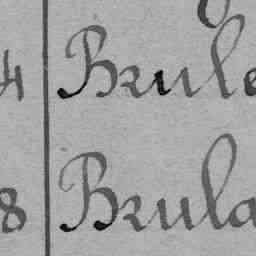 4 Brule
8 Brula